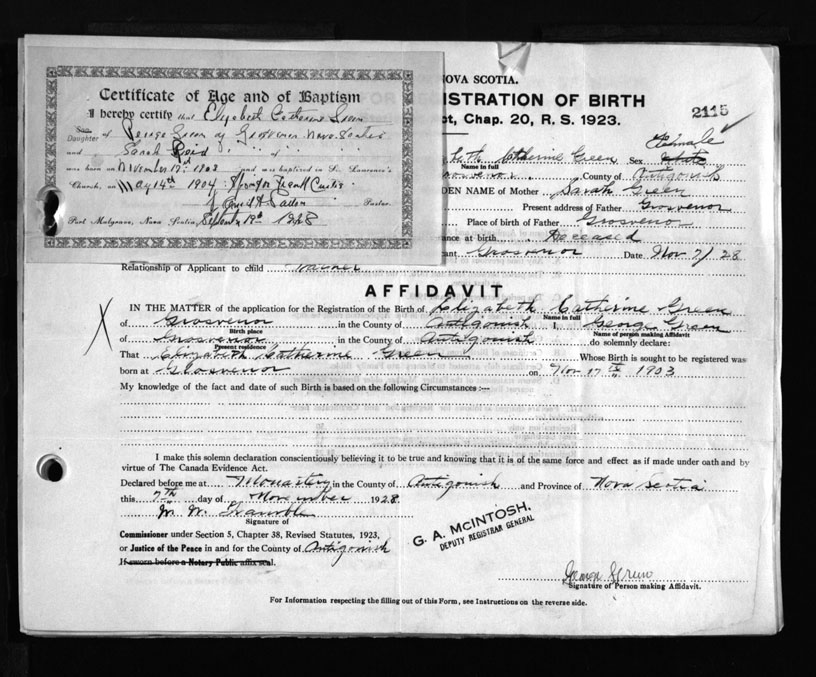 Certificate of Age and of Baptism
I hereby certify that Elizabeth Catherine Green
Son
Daughter of George Green of Grosvenor Nova Scotia
and Sarah Reid of
was born on November 17th 1903 and was baptized in St. Lawrence's
Church, on May 14th 1904
Pastor.
Port Mulgrave, Nova Scotia, 1928
NOVA SCOTIA.
ISTRATION OF BIRTH
ct, Chap. 20, R. S. 1923.
2115
Female
Catherine Green Sex
Name in full
County of Antigonish
DEN NAME of Mother Sarah Green
Present address of Father Grosvenor
Place of birth of Father Grosvenor
ance at birth Deceased
ant Grosvenor Date Nov 7/28
Relationship of Applicant to child
AFFIDAVIT
IN THE MATTER of the application for the Registration of the Birth of Elizabeth Catherine Green
Name in full
of Grosvenor in the County of Antigonish I, George Green
Birth place
Name of person making Affidavit
of Grosvenor in the County of Antigonish do solemnly declare:
Present residence
That Elizabeth Catherine Green Whose Birth is sought to be registered was
born at Grosvenor on Nov 17th 1903
My knowledge of the fact and date of such Birth is based on the following Circumstances :—
I make this solemn declaration conscientiously believing it to be true and knowing that it is of the same force and effect as if made under oath and by
virtue of The Canada Evidence Act.
Declared before me at Monastery in the County of Antigonish and Province of Nova Scotia
this 7th day of November 1928
Signature of
Commissioner under Section 5, Chapter 38, Revised Statutes, 1923,
or Justice of the Peace in and for the County of Antigonish
If sworn before a Notary Public affix seal.
G. A. McINTOSH.
DEPUTY REGISTRAR GENERAL
George Green
Signature of Person making Affidavit.
For Information respecting the filling out of this Form, see Instructions on the reverse side.